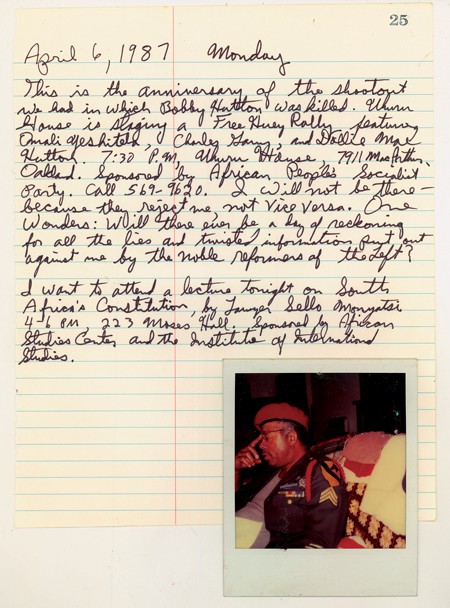 25
April 6, 1987 Monday
This is the anniversary of the shootout
we had in which Bobby Hutton was killed. Uhuru
House is staging a Free Huey Rally, featuring
Omali Yeshitela, Charles Garry, and Dollie Mae
Hutton. 7:30 P.M, Uhuru House 7911 MacArthur,
Oakland. Sponsored by African People's Socialist
Party. Call 569-9620. I will not be there –
because they reject me, not vice versa. One
Wonders: Will there ever be a day of reckoning
for all the lies and twisted information put out
against me by the noble reformers of the Left?
I want to attend a lecture tonight on South
Africa's Constitution, by Lawyer Sello Monyatsi
4-6 PM 223 Moses Hall. Sponsored by African
Studies Center and the Institute of International
Studies.